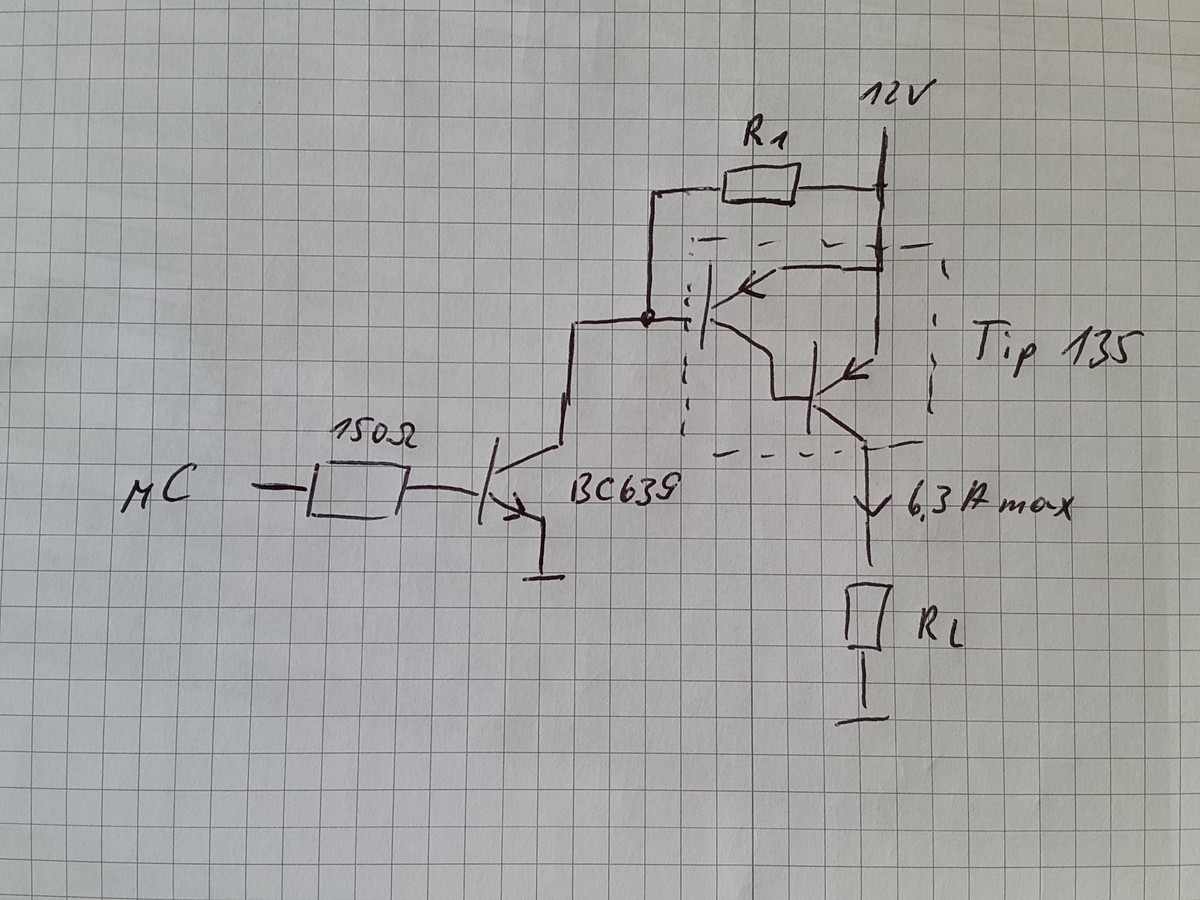 12V
R1
Tip 135
150Ω
μC
BC639
6,3A max
RL